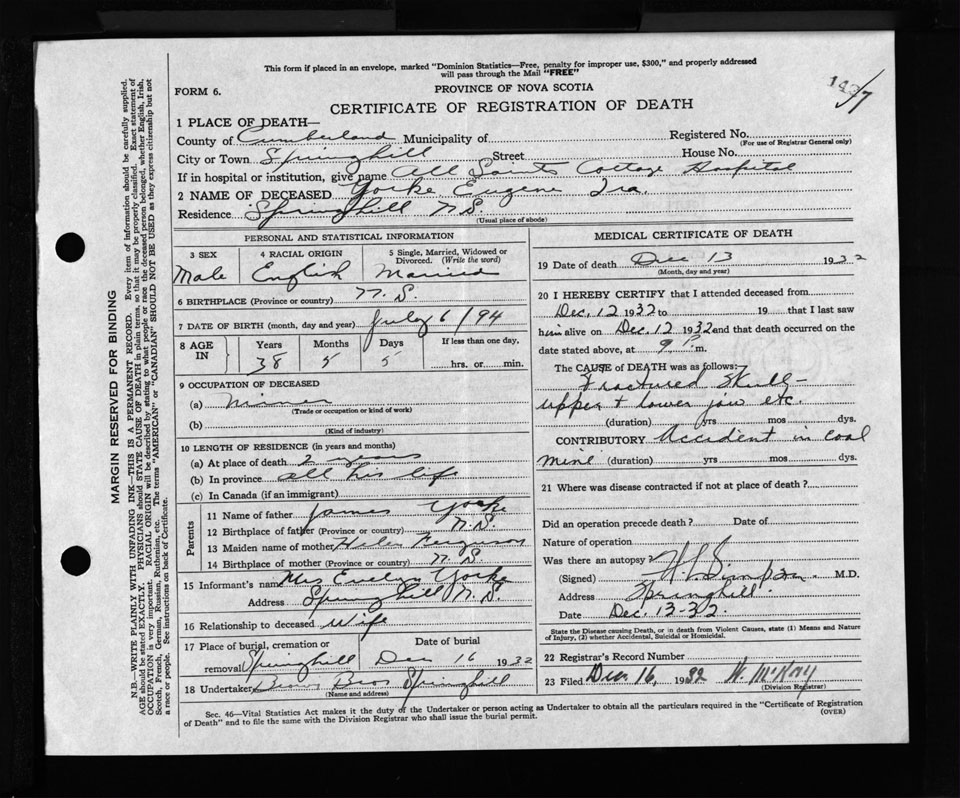 This form if placed in an envelope, marked "Dominion Statistics—Free, penalty for improper use, $300," and properly addressed
will pass through the Mail "FREE"
FORM 6.
PROVINCE OF NOVA SCOTIA
CERTIFICATE OF REGISTRATION OF DEATH
1 PLACE OF DEATH—
County of Cumberland Municipality of Registered No.
(For use of Registrar General only)
City or Town Springhill Street House No.
If in hospital or institution, give name All Saints Cottage Hospital
2 NAME OF DECEASED Yorke Eugene Ira.
Residence Springhill N.S.
(Usual place of abode)
PERSONAL AND STATISTICAL INFORMATION
3 SEX
Male
4 RACIAL ORIGIN
English
5 Single, Married, Widowed or Divorced. (Write the word)
Married
6 BIRTHPLACE (Province or country) N.S.
7 DATE OF BIRTH (month, day and year) July 6/94
8 AGE IN
Years Months Days If less than one day,
38 5 5 hrs. or min.
9 OCCUPATION OF DECEASED
(a) Miner
(Trade or occupation or kind of work)
(b)
(Kind of industry)
10 LENGTH OF RESIDENCE (in years and months)
(a) At place of death 2 years
(b) In province all his life
(c) In Canada (if an immigrant)
Parents
11 Name of father James Yorke
12 Birthplace of father (Province or country) N.S.
13 Maiden name of mother Helen Ferguson
14 Birthplace of mother (Province or country) N S.
15 Informant's name Mrs Evelyn Yorke
Address Springhill N.S.
16 Relationship to deceased Wife
17 Place of burial, cremation or removal Springhill
Date of burial
Dec 16 1932
18 Undertaker Brown Bros Springhill
(Name and address)
MEDICAL CERTIFICATE OF DEATH
19 Date of death Dec 13 1932
(Month, day and year)
20 I HEREBY CERTIFY that I attended deceased from
Dec. 12 1932 to 19 that I last saw
him alive on Dec. 12 1932 and that death occurred on the
date stated above, at 9 P m.
The CAUSE of DEATH was as follows:—
Fractured Skull—
upper + lower jaw etc.
(duration) yrs mos dys.
CONTRIBUTORY Accident in coal
mine (duration) yrs mos dys.
21 Where was disease contracted if not at place of death?
Did an operation precede death? Date of
Nature of operation
Was there an autopsy?
(Signed) Simpson. M.D.
Address Springhill.
Date Dec. 13-32
State the Disease causing Death, or in death from Violent Causes, state (1) Means and Nature
of Injury, (2) whether Accidental, Suicidal or Homicidal.
22 Registrar's Record Number
23 Filed Dec. 16, 1932 McKay
(Division Registrar)
Sec. 46—Vital Statistics Act makes it the duty of the Undertaker or person acting as Undertaker to obtain all the particulars required in the "Certificate of Registration
of Death" and to file the same with the Division Registrar who shall issue the burial permit.
(OVER)
MARGIN RESERVED FOR BINDING
N.B.—WRITE PLAINLY WITH UNFADING INK—THIS IS A PERMANENT RECORD. Every item of information should be carefully supplied.
AGE should be stated EXACTLY. PHYSICIANS should STATE CAUSE OF DEATH in plain terms, so that it may be properly classified. Exact statement of
OCCUPATION is very important. RACIAL ORIGIN will be described by stating to what people or race the deceased person belonged, whether English, Irish,
Scotch, French, German, Russian, Ruthenian, etc. The terms "AMERICAN" or "CANADIAN" SHOULD NOT BE USED as they express citizenship but not
a race or people. See instructions on back of Certificate.